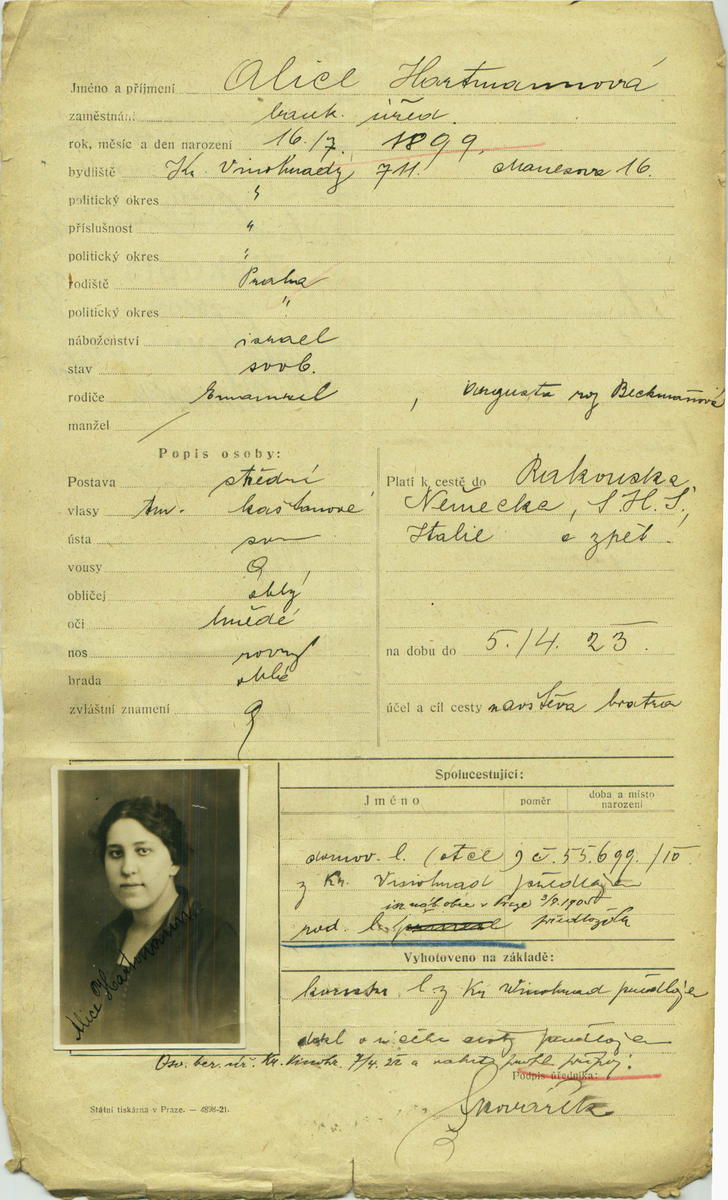 Jméno a příjmení Alice Hartmannová
zaměstnání bank. úřed.
rok, měsíc a den narození 16./7. 1899.
bydliště Kr. Vinohrady 711. Manesova 16.
politický okres "
příslušnost "
politický okres "
rodiště Praha
politický okres "
náboženství israel
stav svob.
rodiče Emanuel , Augusta roz Beckmanová
manžel /
Popis osoby:
Postava střední
vlasy tm. kaštanové
ústa
vousy
obličej oblý
oči hnědé
nos rovný
brada oblá
zvláštní znamení
Platí k cestě do Rakouska,
Německa, S.H.S.,
Italie a zpět.
na dobu do 5./4. 23.
účel a cíl cesty navštěva bratra
Spolucestující:
Jméno poměr doba a místo narození
domov. l. (otce) č. 55.699./10
z Kr. Vinohrad předloža
isr. náb. obce v Praze 3/9. 1900
rod. l. předložila
Vyhotoveno na základě:
l. z Kr Vinohrad
Os. ber. úř. Kr. Vinohr. 7/4. 22 a
Podpis úředníka:
Škovařík
Alice Hartmann
Státní tiskárna v Praze. — 4898-21.